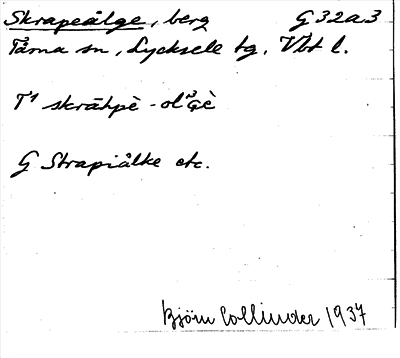 Skrapeålge, berg G 32a3
Tärna sn, Lycksele tg, Vbt l.
T¹ skrāhpè - olˀgè
G Strapiålke etc.
Björn Collinder 1937